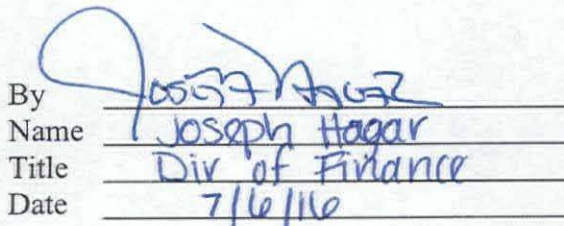 By Joseph Hagar
Name Joseph Hagar
Title Div of Finance
Date 7/6/16